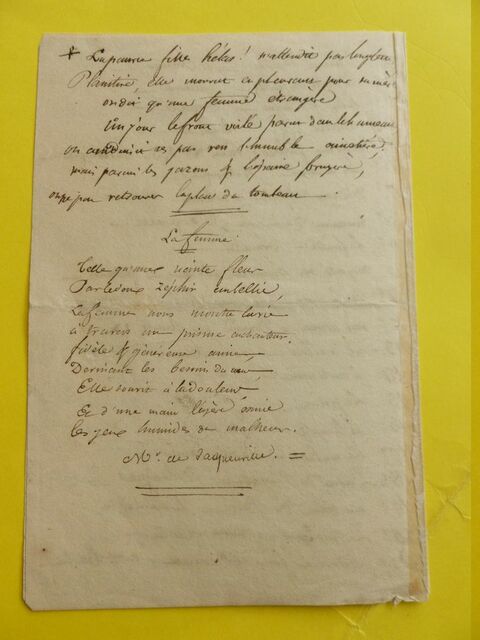 La pauvre fille hélas! n'attendit pas longtems
Plaintive, elle mourut en priant pour sa mère
on dit qu'une femme étrangère
Un jour le front voilé parut dans le hameau
on conduisit ses pas vers l'humble cimetière
mais parmi les gazons & l'épaisse bruyère,
on ne put retrouver la place du tombeau
La femme
Telle qu'une récinte fleur
Par le doux zéphir embellie,
La femme nous montre la vie
à travers un prisme enchanteur
fidèle & généreuse amie
Devinant les besoins du cœur
Elle sourit à la douleur,
Et d'une main légère essuie
les yeux humides du malheur.
Mr. de